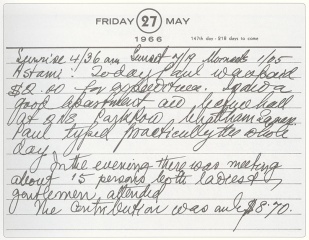 FRIDAY 27 MAY
1966
147th day - 218 days to come
Sunrise 4/36 am Sunset 7/19 Moonset 1/05
Today Paul was paid
$2.00 for
good apartment and lecture hall
at
Paul typed practically the whole
day.
In the evening there was meeting
about 15 persons both ladies &
gentlemen attended
The Contribution was only $8.70.